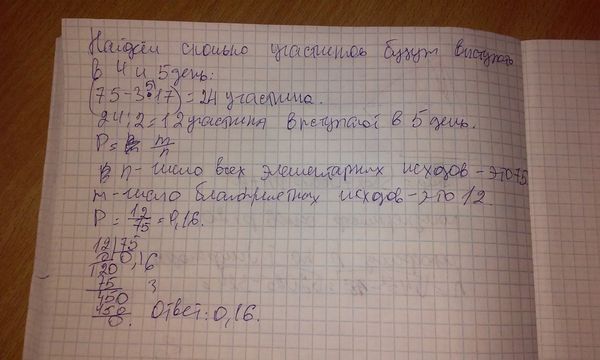 Найдём сколько участников будут выступать
в 4 и 5 день:
(75-3·17)=24 участника.
24:2=12 участника выступают в 5 день.
P= m/n
n-число всех элементарных исходов-это 75
m-число благоприятных исходов-это 12.
P=12/75=0,16.
12|75
0 0,16
120
75
450
450
0.
Ответ: 0,16.